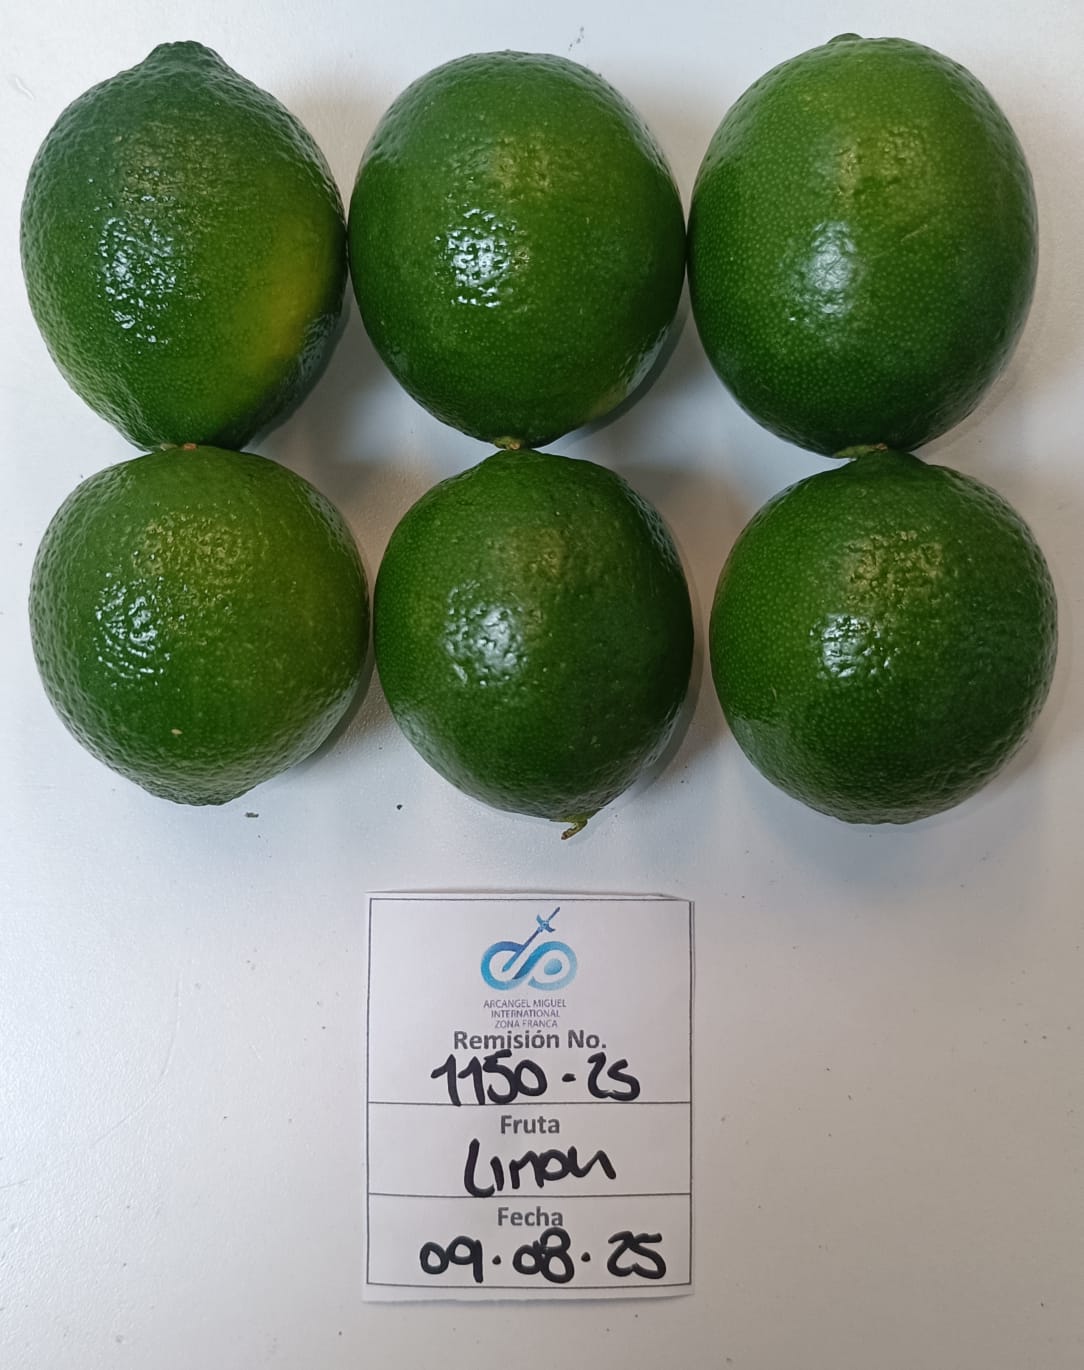 ARCANGEL MIGUEL
INTERNATIONAL
ZONA FRANCA
Remisión No.
1150-25
Fruta
Limon
Fecha
09.08.25